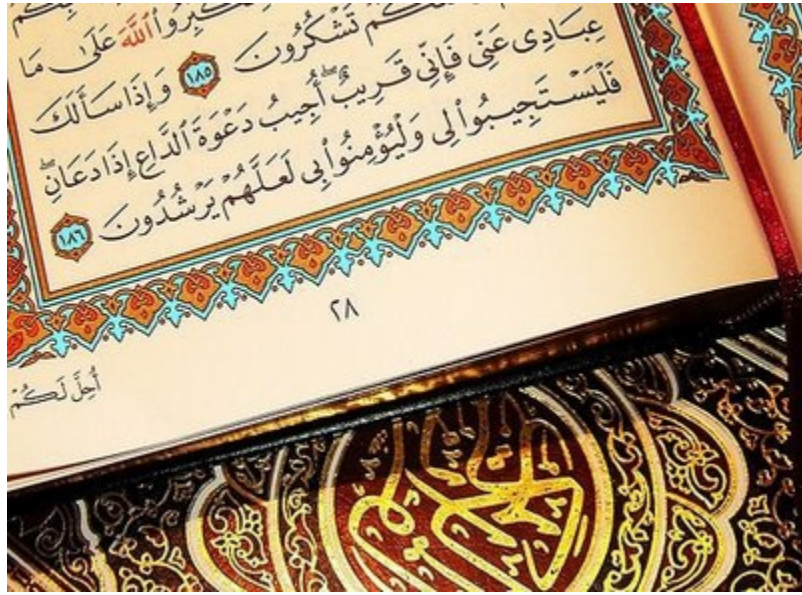 كُمْ
تُكَبِّرُوا۟ ٱللَّهَ عَلَىٰ مَا
كُمْ تَشْكُرُونَ ١٨٥ وَإِذَا سَأَلَكَ
عِبَادِى عَنِّى فَإِنِّى قَرِيبٌ ۖ أُجِيبُ دَعْوَةَ ٱلدَّاعِ إِذَا دَعَانِ ۖ
فَلْيَسْتَجِيبُوا۟ لِى وَلْيُؤْمِنُوا۟ بِى لَعَلَّهُمْ يَرْشُدُونَ ١٨٦
٢٨
أُحِلَّ لَكُمْ